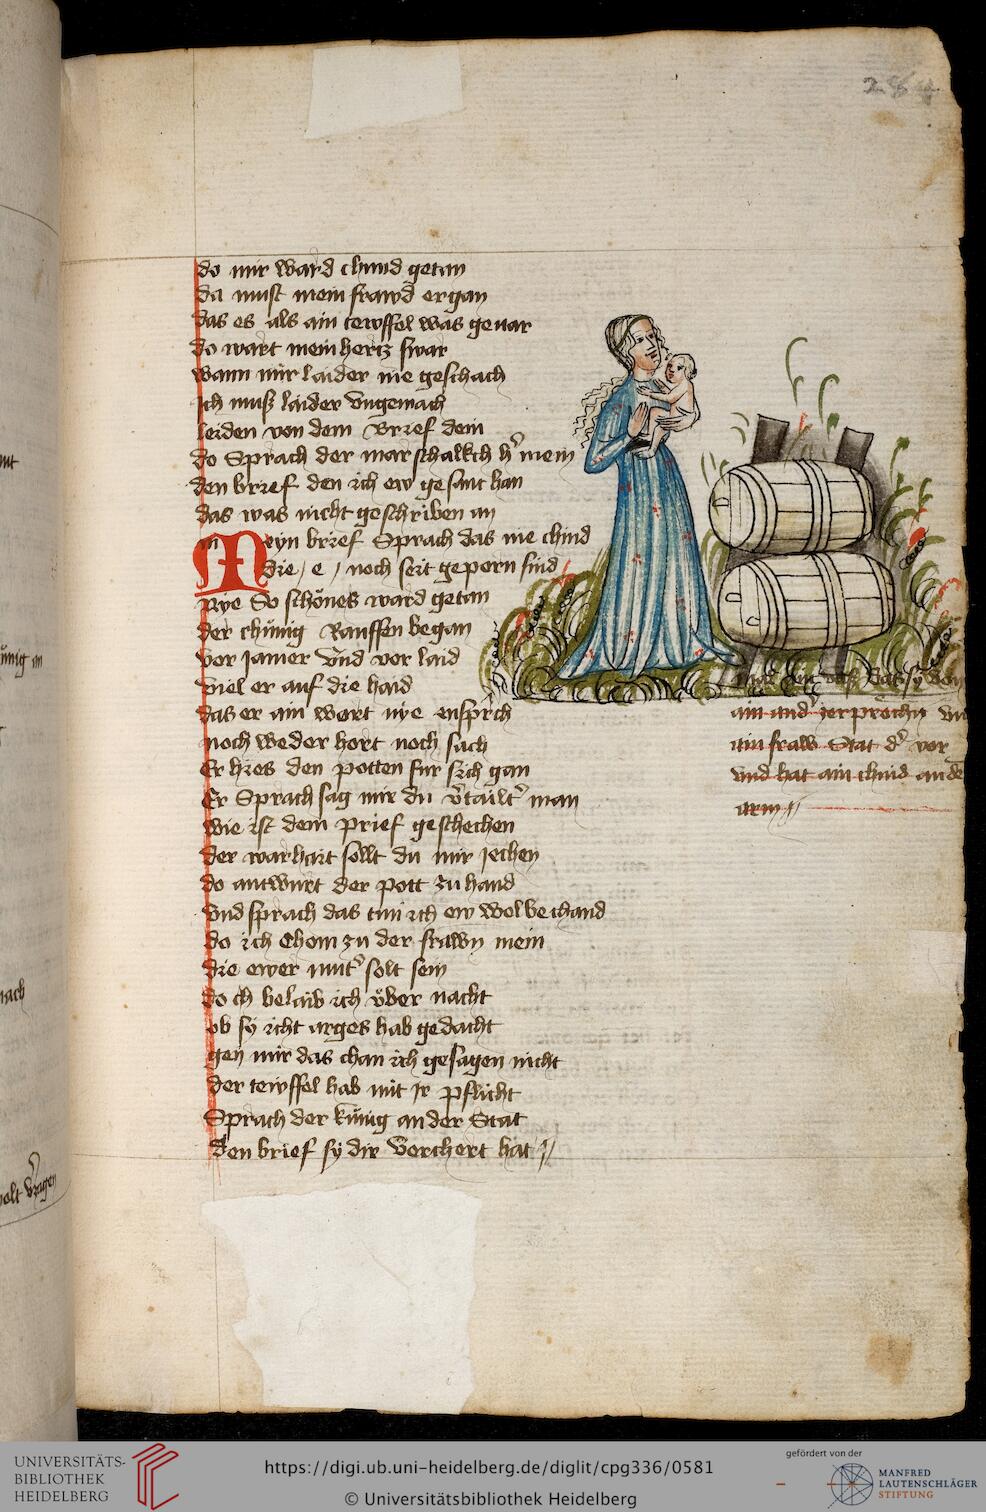 284
do mir ward chund getan
da must mein frawd ergan
das es als ain tewffel was gevar
do wart mein hertz swar
wann mir laider nie geschach
ich muß laider vngemach
leiden von dem brief dein
do Sprach der marschalkch h̓ mein
den brief den ich ew gesant han
das was nicht geschriben an
in Meyn brief Sprach das nie chind
die / e / noch seit geporn sind
nye So schönes ward getan
der chünig Rauffen began
vor Jamer vnd vor laid
viel er auf die haid
das er ain wort nye ensprch
noch weder hort noch sach
Er hies den potten fur sich gan
Er Sprach sag mir du v̓tailt̓ man
wie ist dem prief geschechen
der warhait sollt du mir jechen
do antwurt der pott zu hand
vnd sprach das tun ich ew wol bechand
do ich chom zu der frawn mein
die ewer mut̓ solt sein
do ch belaib ich über nacht
ob sy icht arges hab gedacht
gen mir das chan ich gesagen nicht
der tewffel hab mit Jr pflicht
Sprach der künig an der Stat
den brief sy dir verchert hat
ain and̓ zerprochn
ain fraw Stat d̓ vor
vnd hat ain chind an de
arm
ünig an
nach
UNIVERSITÄTS-
BIBLIOTHEK
HEIDELBERG
https://digi.ub.uni-heidelberg.de/diglit/cpg336/0581
© Universitätsbibliothek Heidelberg
gefördert von der
MANFRED
LAUTENSCHLÄGER
STIFTUNG